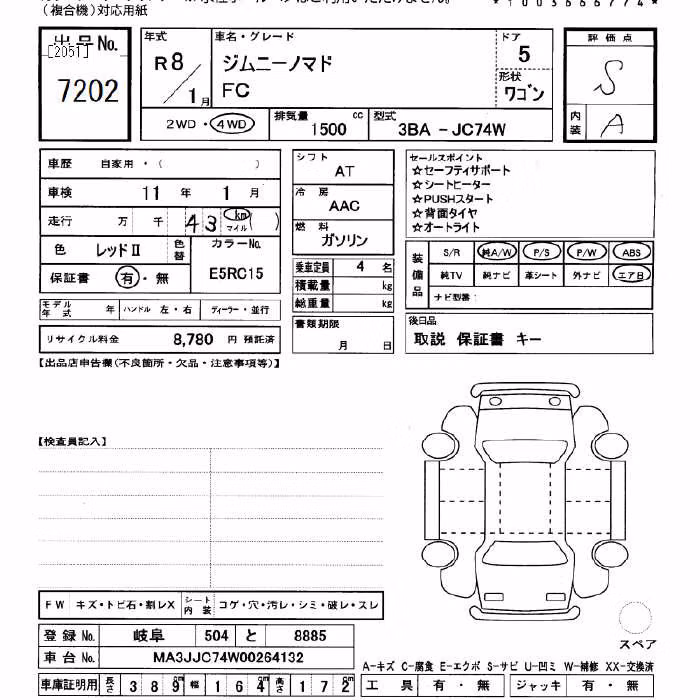 (複合機)対応用紙
*1003666774*
出品No.
[2051]
7202
年式
R8/1月
車名・グレード
ジムニーノマド
FC
ドア
5
形状
ワゴン
評価点
S
内装
A
2WD・4WD
排気量
1500 cc
型式
3BA - JC74W
車歴 自家用・( )
車検 11年 1月
走行 万 千 43 km マイル ( )
色 レッドⅡ
色替
カラーNo.
E5RC15
保証書 有・無
モデル年式 年
ハンドル 左・右
ディーラー・並行
リサイクル料金 8,780 円 預託済
シフト
AT
冷房
AAC
燃料
ガソリン
乗車定員 4 名
積載量 kg
総重量 kg
書類期限
月 日
セールスポイント
☆セーフティサポート
☆シートヒーター
☆PUSHスタート
☆背面タイヤ
☆オートライト
装備品
S/R 純A/W P/S P/W ABS
純TV 純ナビ 革シート 外ナビ エアB
ナビ型番:
後日品
取説 保証書 キー
【出品店申告欄(不良箇所・欠品・注意事項等)】
【検査員記入】
FW キズ・トビ石・割レX
シート内装 コゲ・穴・汚レ・シミ・破レ・スレ
登録No. 岐阜 504 と 8885
車台No. MA3JJC74W00264132
車庫証明用 長さ 389 cm 幅 164 cm 高さ 172 cm
スペア
A-キズ C-腐食 E-エクボ S-サビ U-凹ミ W-補修 XX-交換済
工具 有・無 ジャッキ 有・無